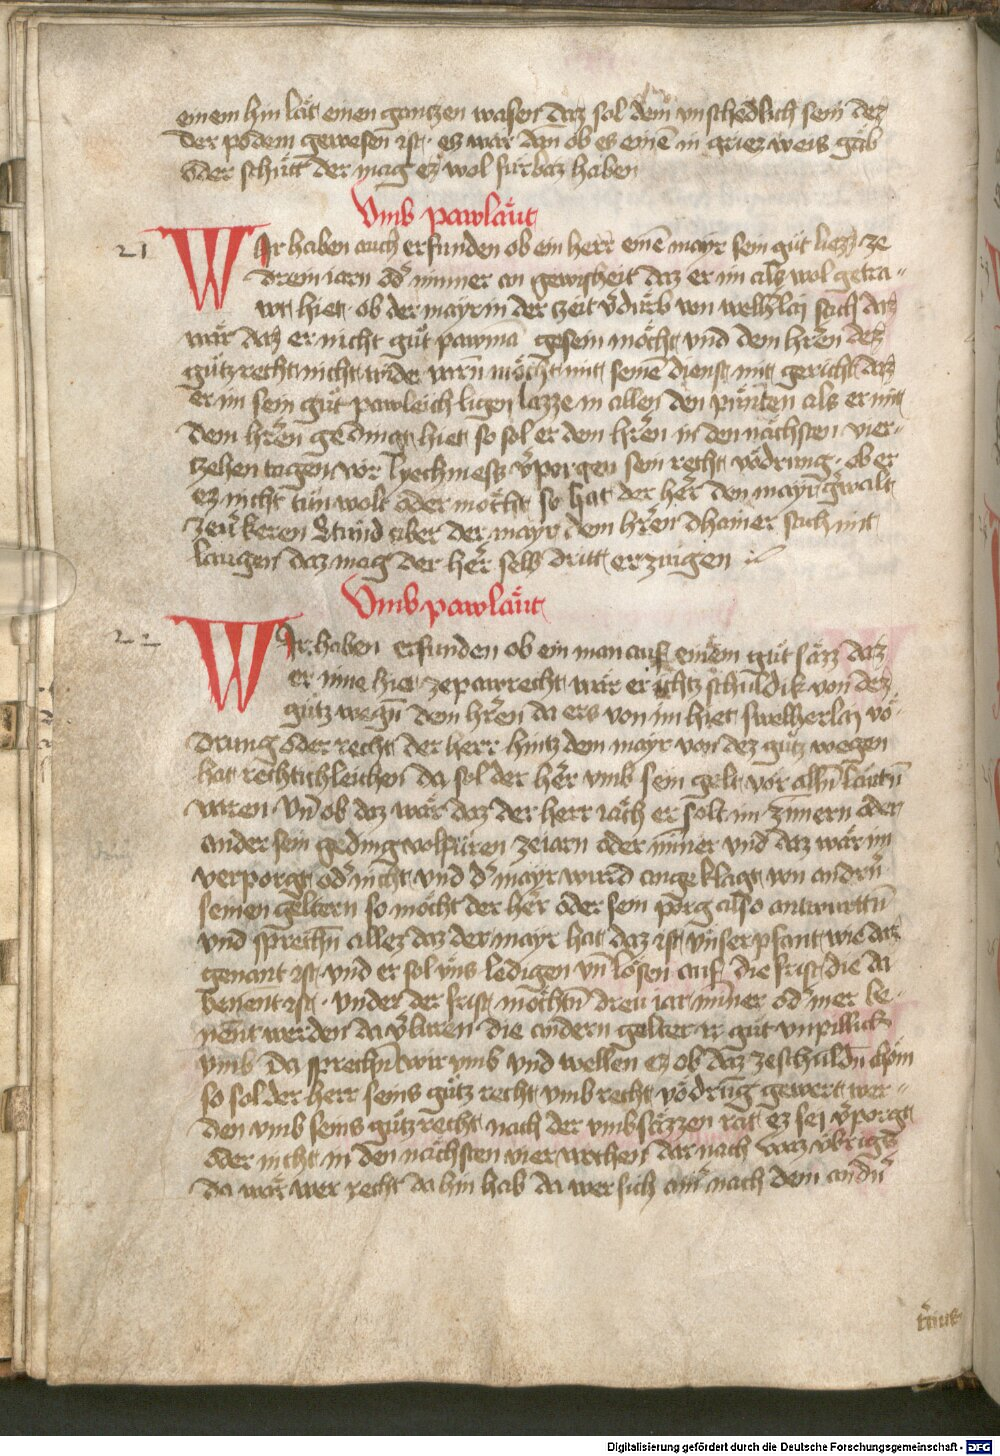 einem hin lät einen gantzen wasen daz sol dem vnschedlich sein dez
der podem gewesen ist · ez wär dan ob ez einē in griez weis gäb
oder schütt der mag ez wol fürbaz haben
Vmb pawläut
21 Wir haben auch erfunden ob ein herr einē mayr sein gůt liezz ze
drein iarn od͛ minner an gewisheit daz er im alz wol getra-
wt hiet ob der mayr in der zeit v͛dürb von welh͛lay sach daz
wär daz er nicht gůt pawma gesein möcht vnd dem hr͛en dez
gůtz recht nicht wider varn möcht mit seinē dienst mit gericht daz
er im sein gůt pawleich ligen lazze in allen den pünten als er mit
dem hr͛en gedingt hiet so sol er dem hr͛en in den nächsten vier-
tzehen tagen vor lyechmess v͛porgen sein recht vödrung · ob er
ez nicht tůn wolt oder möcht so hat der her͛ den mayr gwalt
ze v͛keren Stünd aber der mayr dem hr͛en dhainer sach mit
laugen daz mag der her͛ selb dritt erzeugen
Vmb pawläut
22 Wir haben erfunden ob ein man auf einem gůt säzz daz
er inne hiet ze pawrecht wär er ichtz schuldik von dez
gůtz wegn̄ dem hr͛en da ers von im hiet swelherlay vö-
drung oder recht der herr hintz dem mayr von dez gůtz wegen
hat rechtichleichen da sol der her͛ vmb sein gelt vor alln̄ läutn̄
varen · Vn̄ ob daz wär daz der herr iäch er solt im zimern oder
ander sein geding volfüren ze iarn oder minner vnd daz wär im
verporgt od͛ nicht vnd d͛ mayr wurd angeklagt von andrn̄
seinen geltern so möcht der her͛ oder sein porg also antwurttn̄
vnd sprechn̄ allez daz der mayr hat daz ist vnser pfant wie daz
genant ist vnd er sol vns ledigen vn̄ lösen auf die frist die da
benent ist · vnder der frist möchtn̄ dreu iar mīner od͛ mer be-
nent werden da v͛luren die andern gelter ir gůt vnpillich
vmb Da sprechn̄ wir vmb vnd wellen ez ob daz ze schuldn̄ chöm
so sol der herr seins gůtz recht vmb recht vödrūg gewert wer-
den vmb seins gůtz recht nach der vmbsäzzen rät ez sej v͛porgt
oder nicht in den nächsten vier wochen dar nach waz vbrigs
da wär wer recht da hin hab da wer sich ain͛ nach dem andn̄